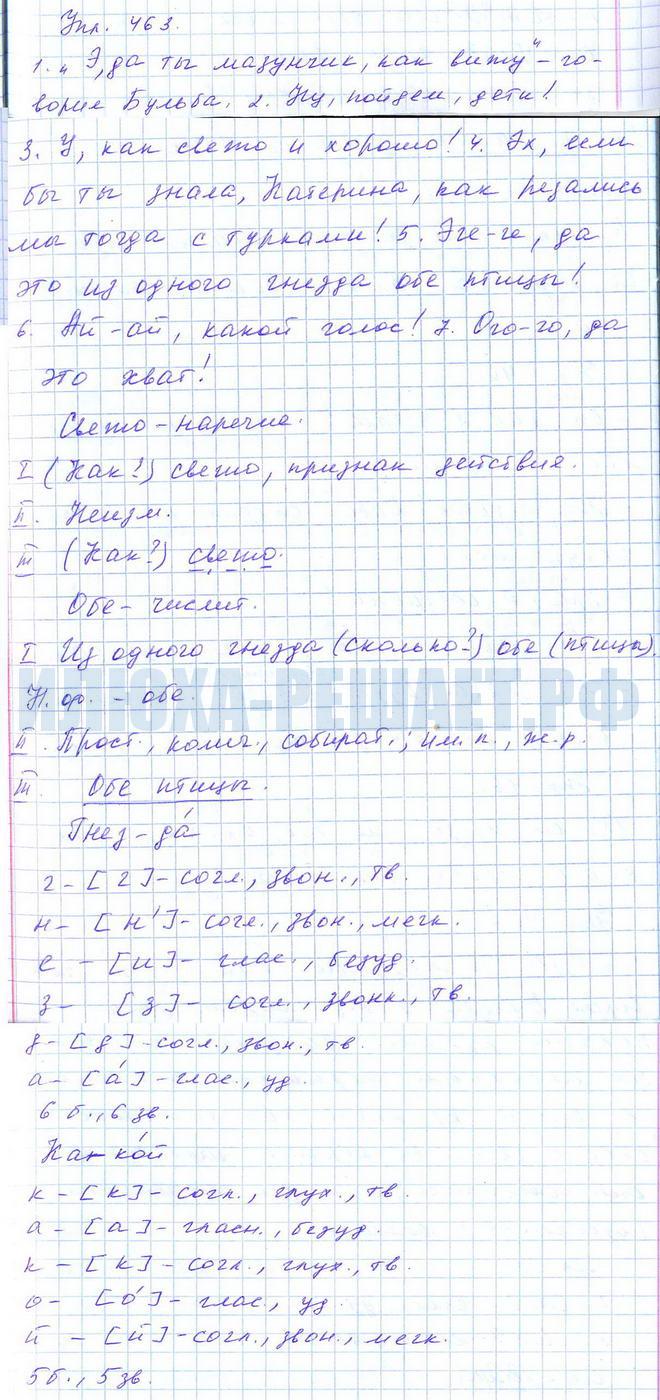 Упл. 463.
1. „Э, да ты мазунчик, как вижу" – го-
ворил Бульба. 2. Ну, пойдем, дети!
3. У, как свежо и хорошо! 4. Эх, если
бы ты знала, Катерина, как резались
мы тогда с турками! 5. Эге-ге, да
это из одного гнезда обе птицы!
6. Ай-ай, какой голос! 7. Ого-го, да
это хват!
Свежо – наречие.
I (Как?) свежо, признак действия.
II. Неизм.
III (Как?) свежо.
Обе – числит.
I Из одного гнезда (сколько?) обе (птицы).
Н. ф. – обе.
ИЛЮХА-РЕШАЕТ.РФ
II. Прост., колич., собират.; им. п., ж. р.
III. Обе птицы.
Гнез-да́
г – [г] – согл., звон., тв.
н – [н'] – согл., звон., мягк.
е – [и] – глас., безуд.
з – [з] – согл., звонк., тв.
д – [д] – согл., звон., тв.
а – [а́] – глас., уд.
6 б., 6 зв.
Ка-ко́й
к – [к] – согл., глух., тв.
а – [а] – гласн., безуд.
к – [к] – согл., глух., тв.
о – [о́] – глас., уд.
й – [й] – согл., звон., мягк.
5 б., 5 зв.